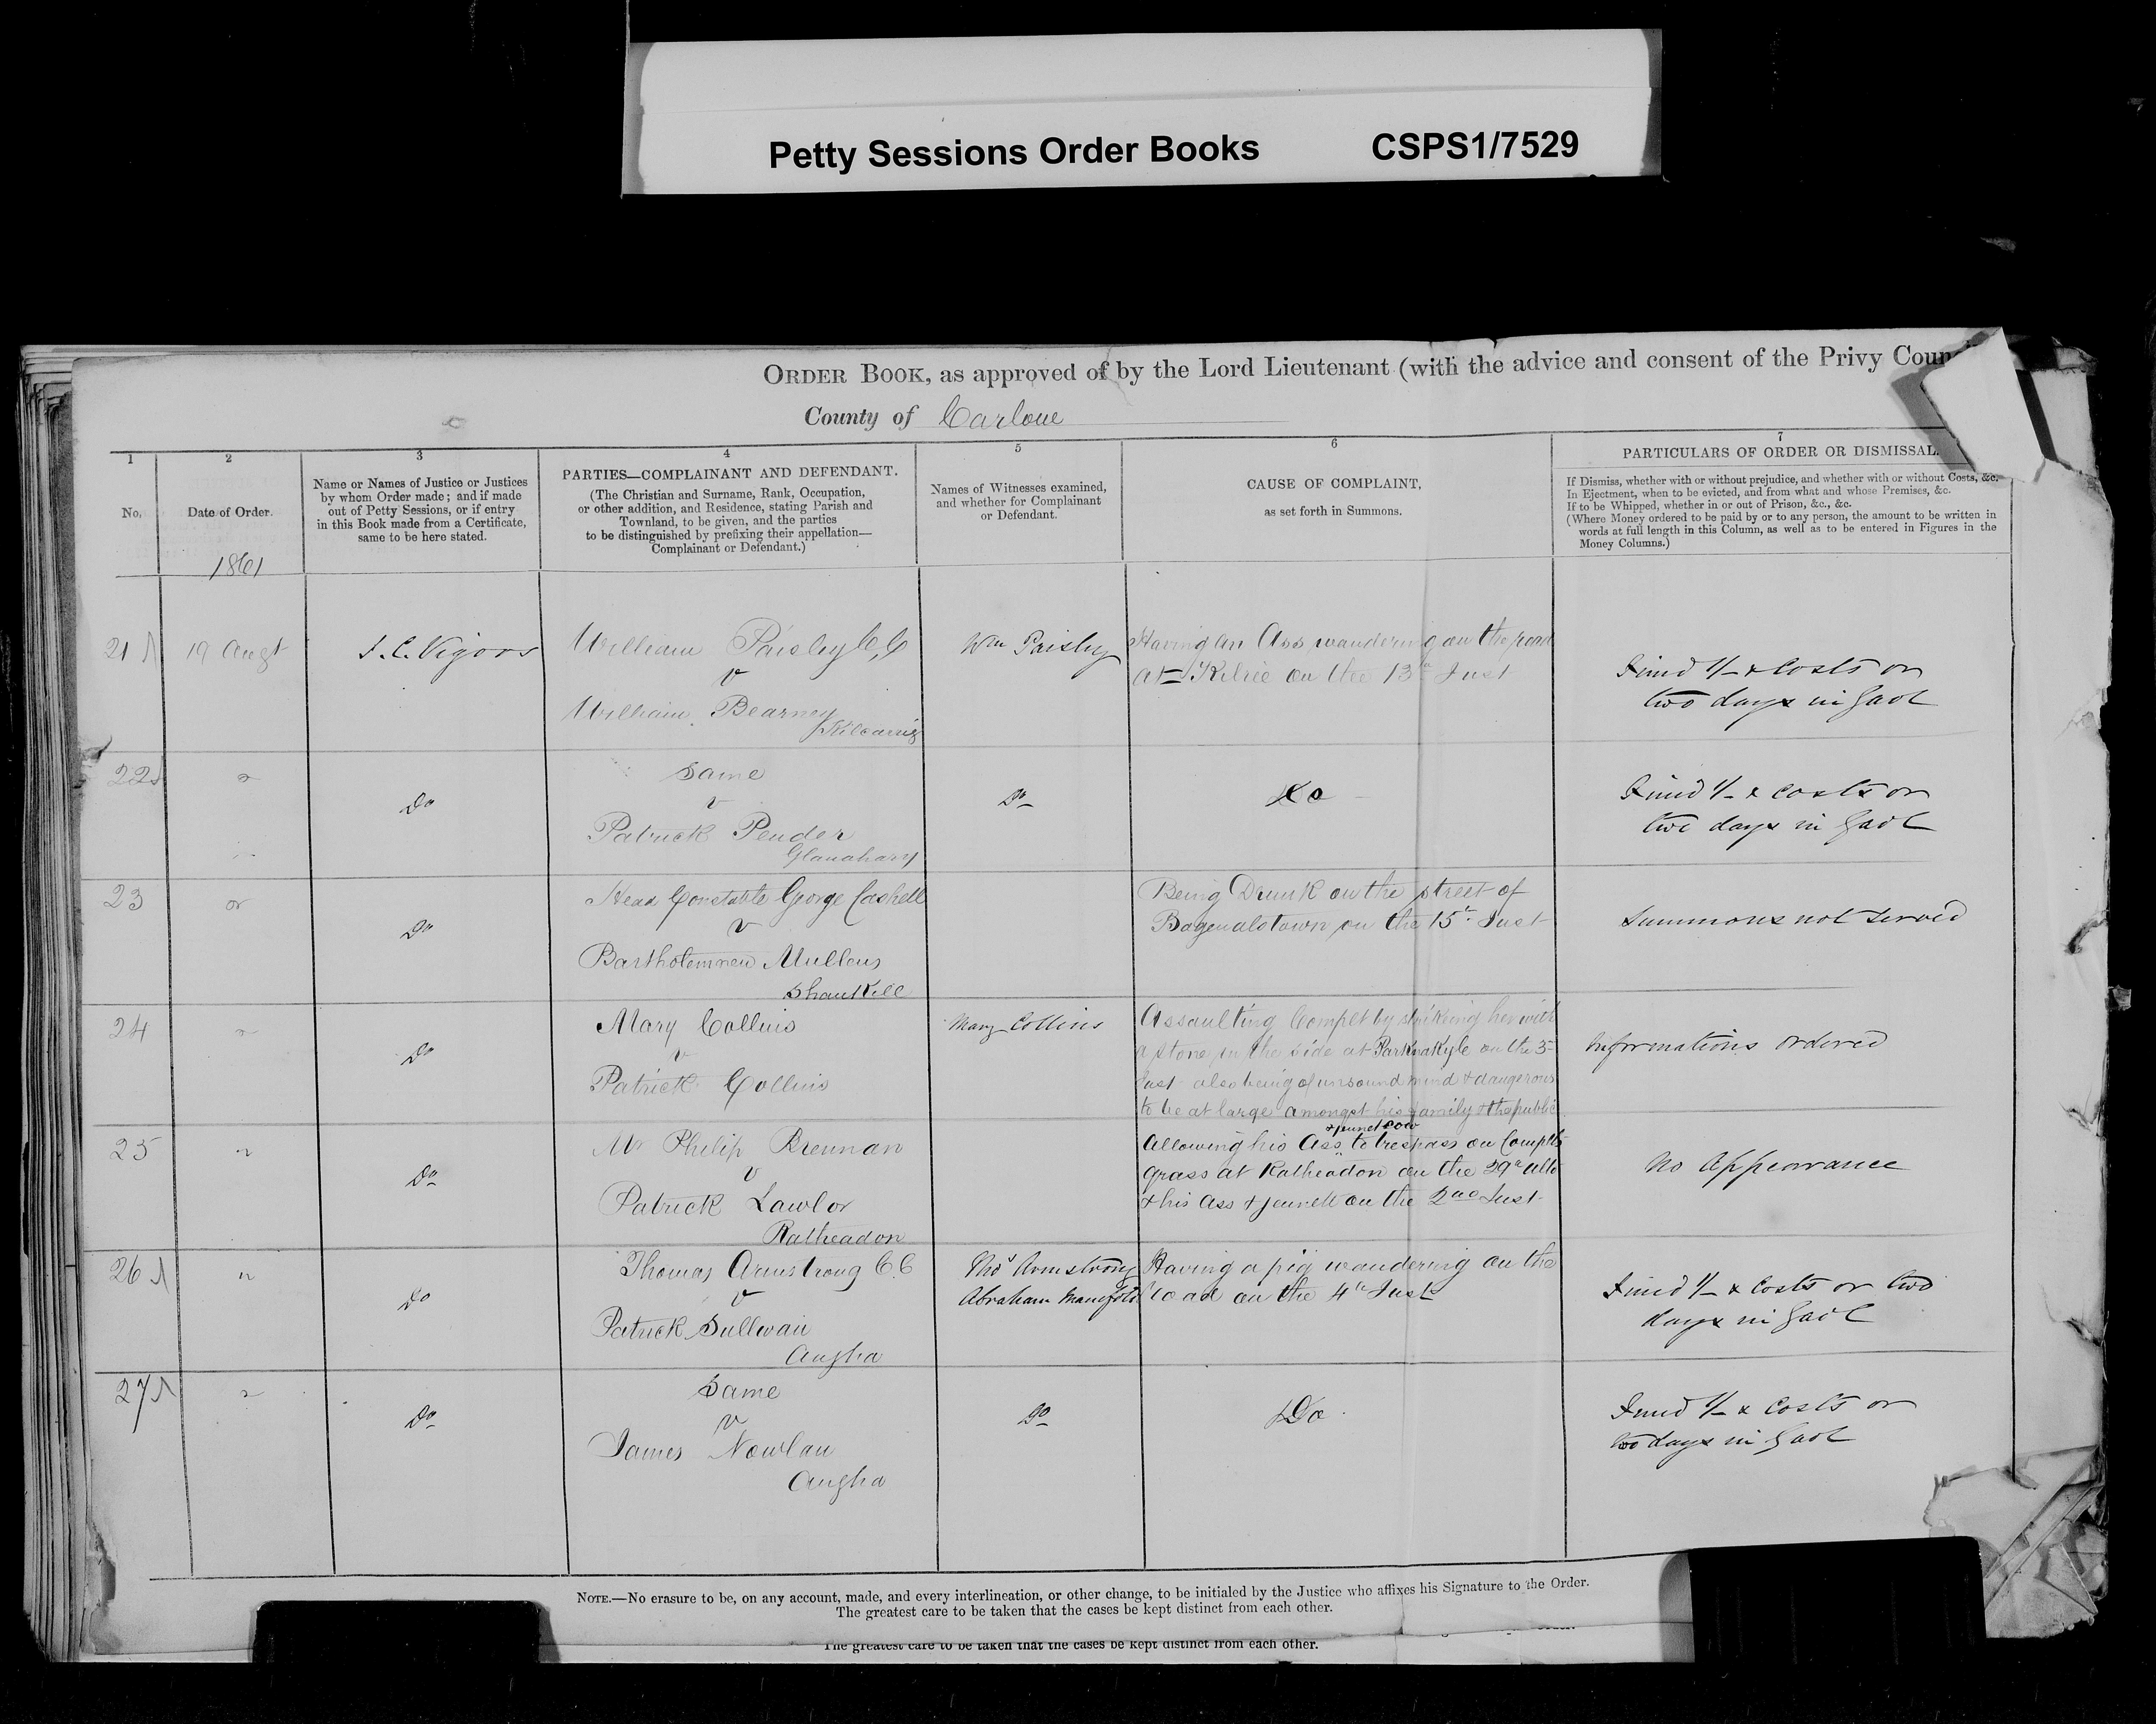 Petty Sessions Order Books CSPS1/7529
ORDER BOOK, as approved of by the Lord Lieutenant (with the advice and consent of the Privy Counc
County of Carlow
1
2
3
4
5
6
7
No.
Date of Order.
1861
Name or Names of Justice or Justices
by whom Order made; and if made
out of Petty Sessions, or if entry
in this Book made from a Certificate,
same to be here stated.
PARTIES—COMPLAINANT AND DEFENDANT.
(The Christian and Surname, Rank, Occupation,
or other addition, and Residence, stating Parish and
Townland, to be given, and the parties
to be distinguished by prefixing their appellation—
Complainant or Defendant.)
Names of Witnesses examined,
and whether for Complainant
or Defendant.
CAUSE OF COMPLAINT,
as set forth in Summons.
PARTICULARS OF ORDER OR DISMISSAL.
If Dismiss, whether with or without prejudice, and whether with or without Costs, &c.
In Ejectment, when to be evicted, and from what and whose Premises, &c.
If to be Whipped, whether in or out of Prison, &c., &c.
(Where Money ordered to be paid by or to any person, the amount to be written in
words at full length in this Column, as well as to be entered in Figures in the
Money Columns.)
21
19 Augt
Vigors
William Paisley C.C
v
William Bearney
Kilcarrig
Wm Paisley
Having an Ass wandering on the road
at Kilree on the 13th Inst
Fined 1/- & Costs or
two days in Gaol
22
"
Do
Same
v
Patrick Pender
Do
Do
Fined 1/- & costs or
two days in Gaol
23
Do
Head Constable George Cashell
v
Bartholemnew Mullens
Shankill
Being Drunk on the street of
Bagenalstown on the 15th Inst
Summons not served
24
"
Do
Mary Collins
v
Patrick Collins
Mary Collins
Assaulting Complt by striking her with
a stone in the side at ParknaKyle on the 3rd
Inst also being of unsound mind & dangerous
to be at large amongst his family & the public
Informations ordered
25
"
Do
Mr Philip Brennan
v
Patrick Lawlor
Ratheadon
& jennet cow
Allowing his Ass to trespass on Complts
grass at Ratheadon on the 29th ulto
& his Ass & jennett on the 2nd Inst
No Appearance
26
"
Do
Thomas Armstrong C.C
v
Patrick Sullivan
Augha
Thos Armstrong
Abraham Manifold
Having a pig wandering on the
road on the 4th Inst
Fined 1/- & Costs or two
days in Gaol
27
"
Do
Same
v
James Nowlan
Augha
Do
Do
Fined 1/- & Costs or
two days in Gaol
NOTE.—No erasure to be, on any account, made, and every interlineation, or other change, to be initialed by the Justice who affixes his Signature to the Order.
The greatest care to be taken that the cases be kept distinct from each other.
The greatest care to be taken that the cases be kept distinct from each other.